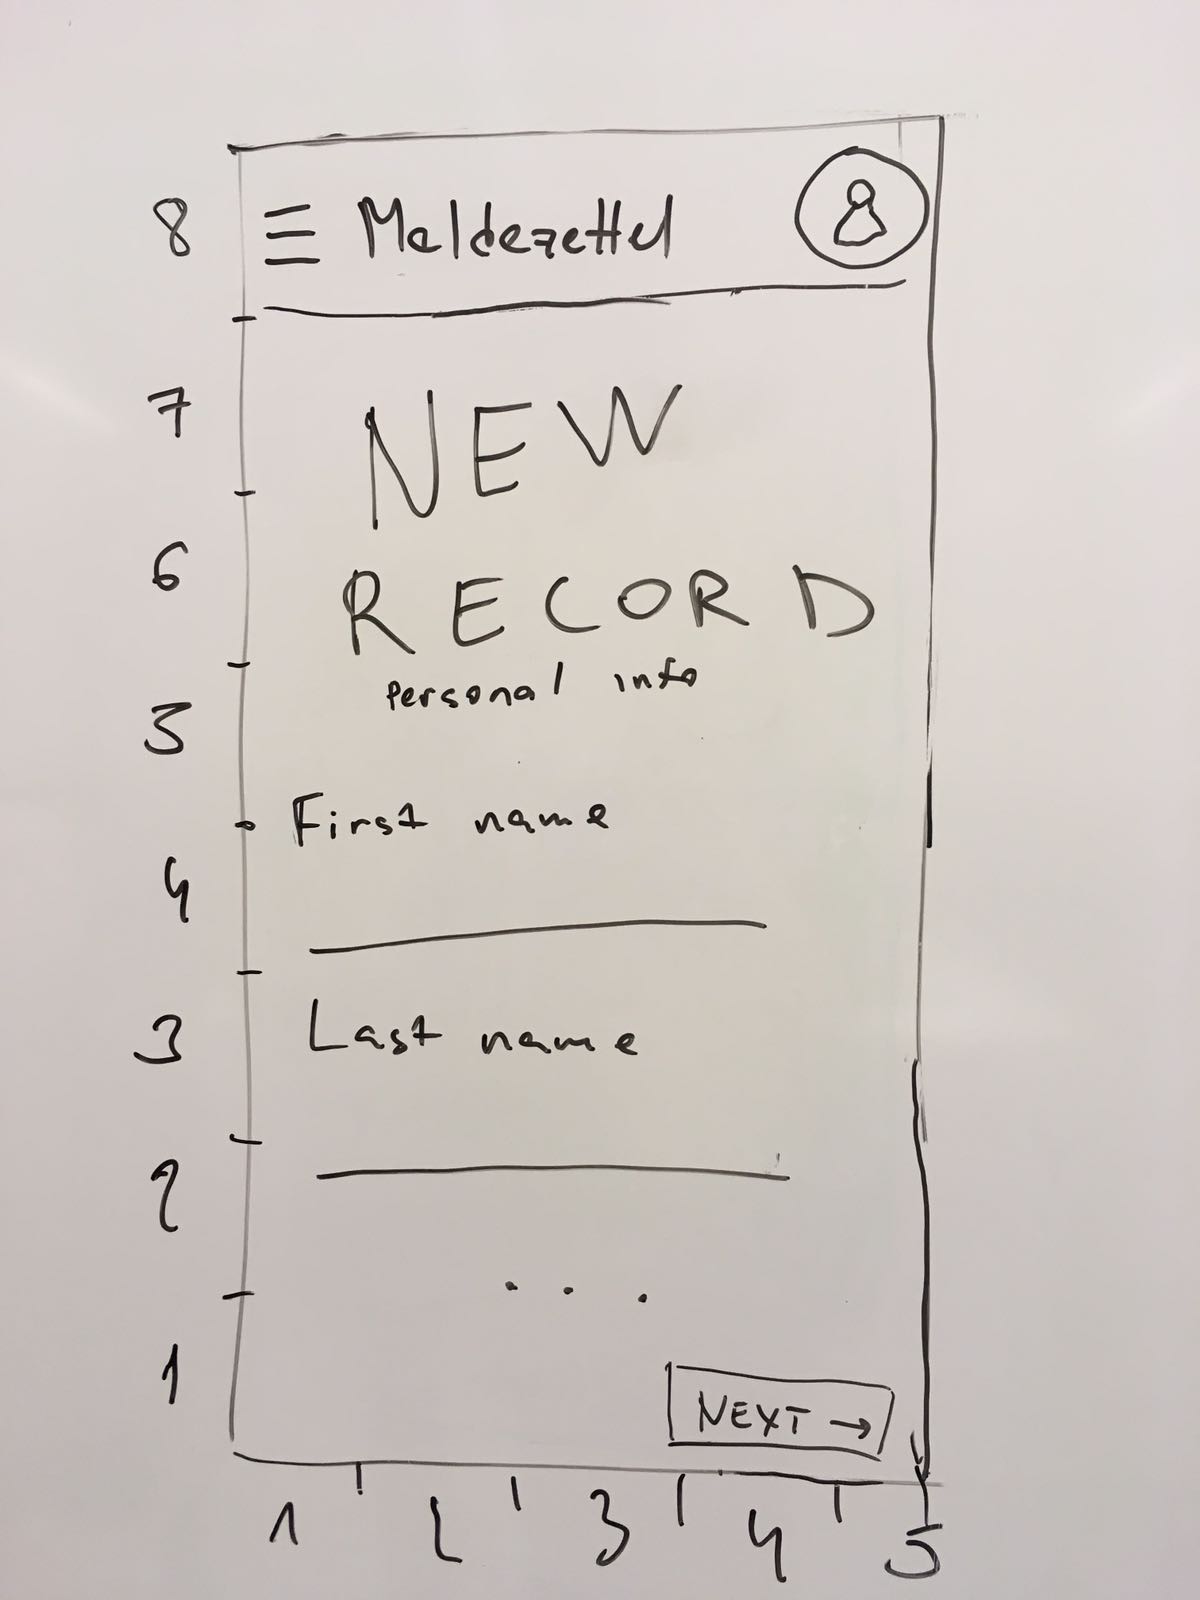 8 Meldezettel
7 NEW
6 RECORD
personal info
5
First name
4
3 Last name
2
...
1
NEXT →
1 2 3 4 5